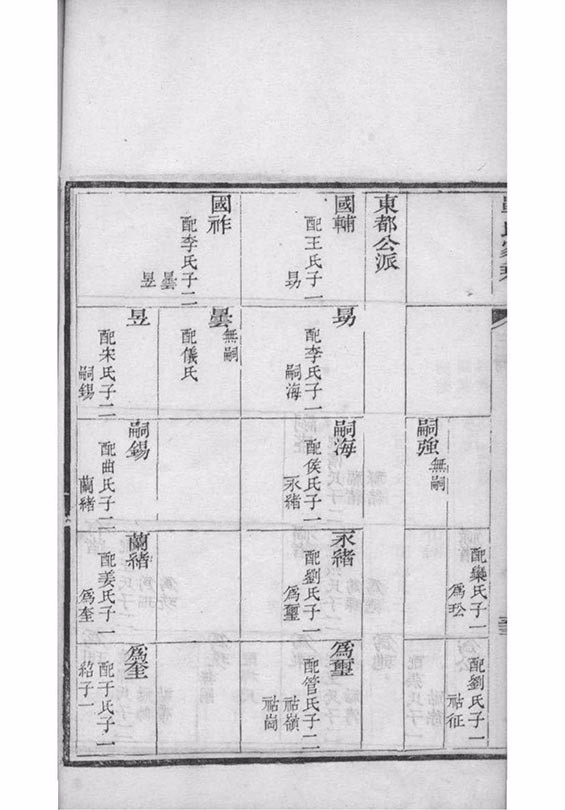 東都公派
國輔
配王氏子一
勗
國祚
配李氏子二
曇
昱
勗
配李氏子一
嗣海
曇
無嗣
配儀氏
昱
配宋氏子二
嗣錫
嗣強
無嗣
嗣海
配侯氏子一
永緒
嗣錫
配曲氏子二
蘭緒
配欒氏子一
永緒
配劉氏子一
為璽
蘭緒
配姜氏子一
為奎
配劉氏子一
祜征
為璽
配管氏子二
祜嶺
祜崗
為奎
配于氏子一
紹子一